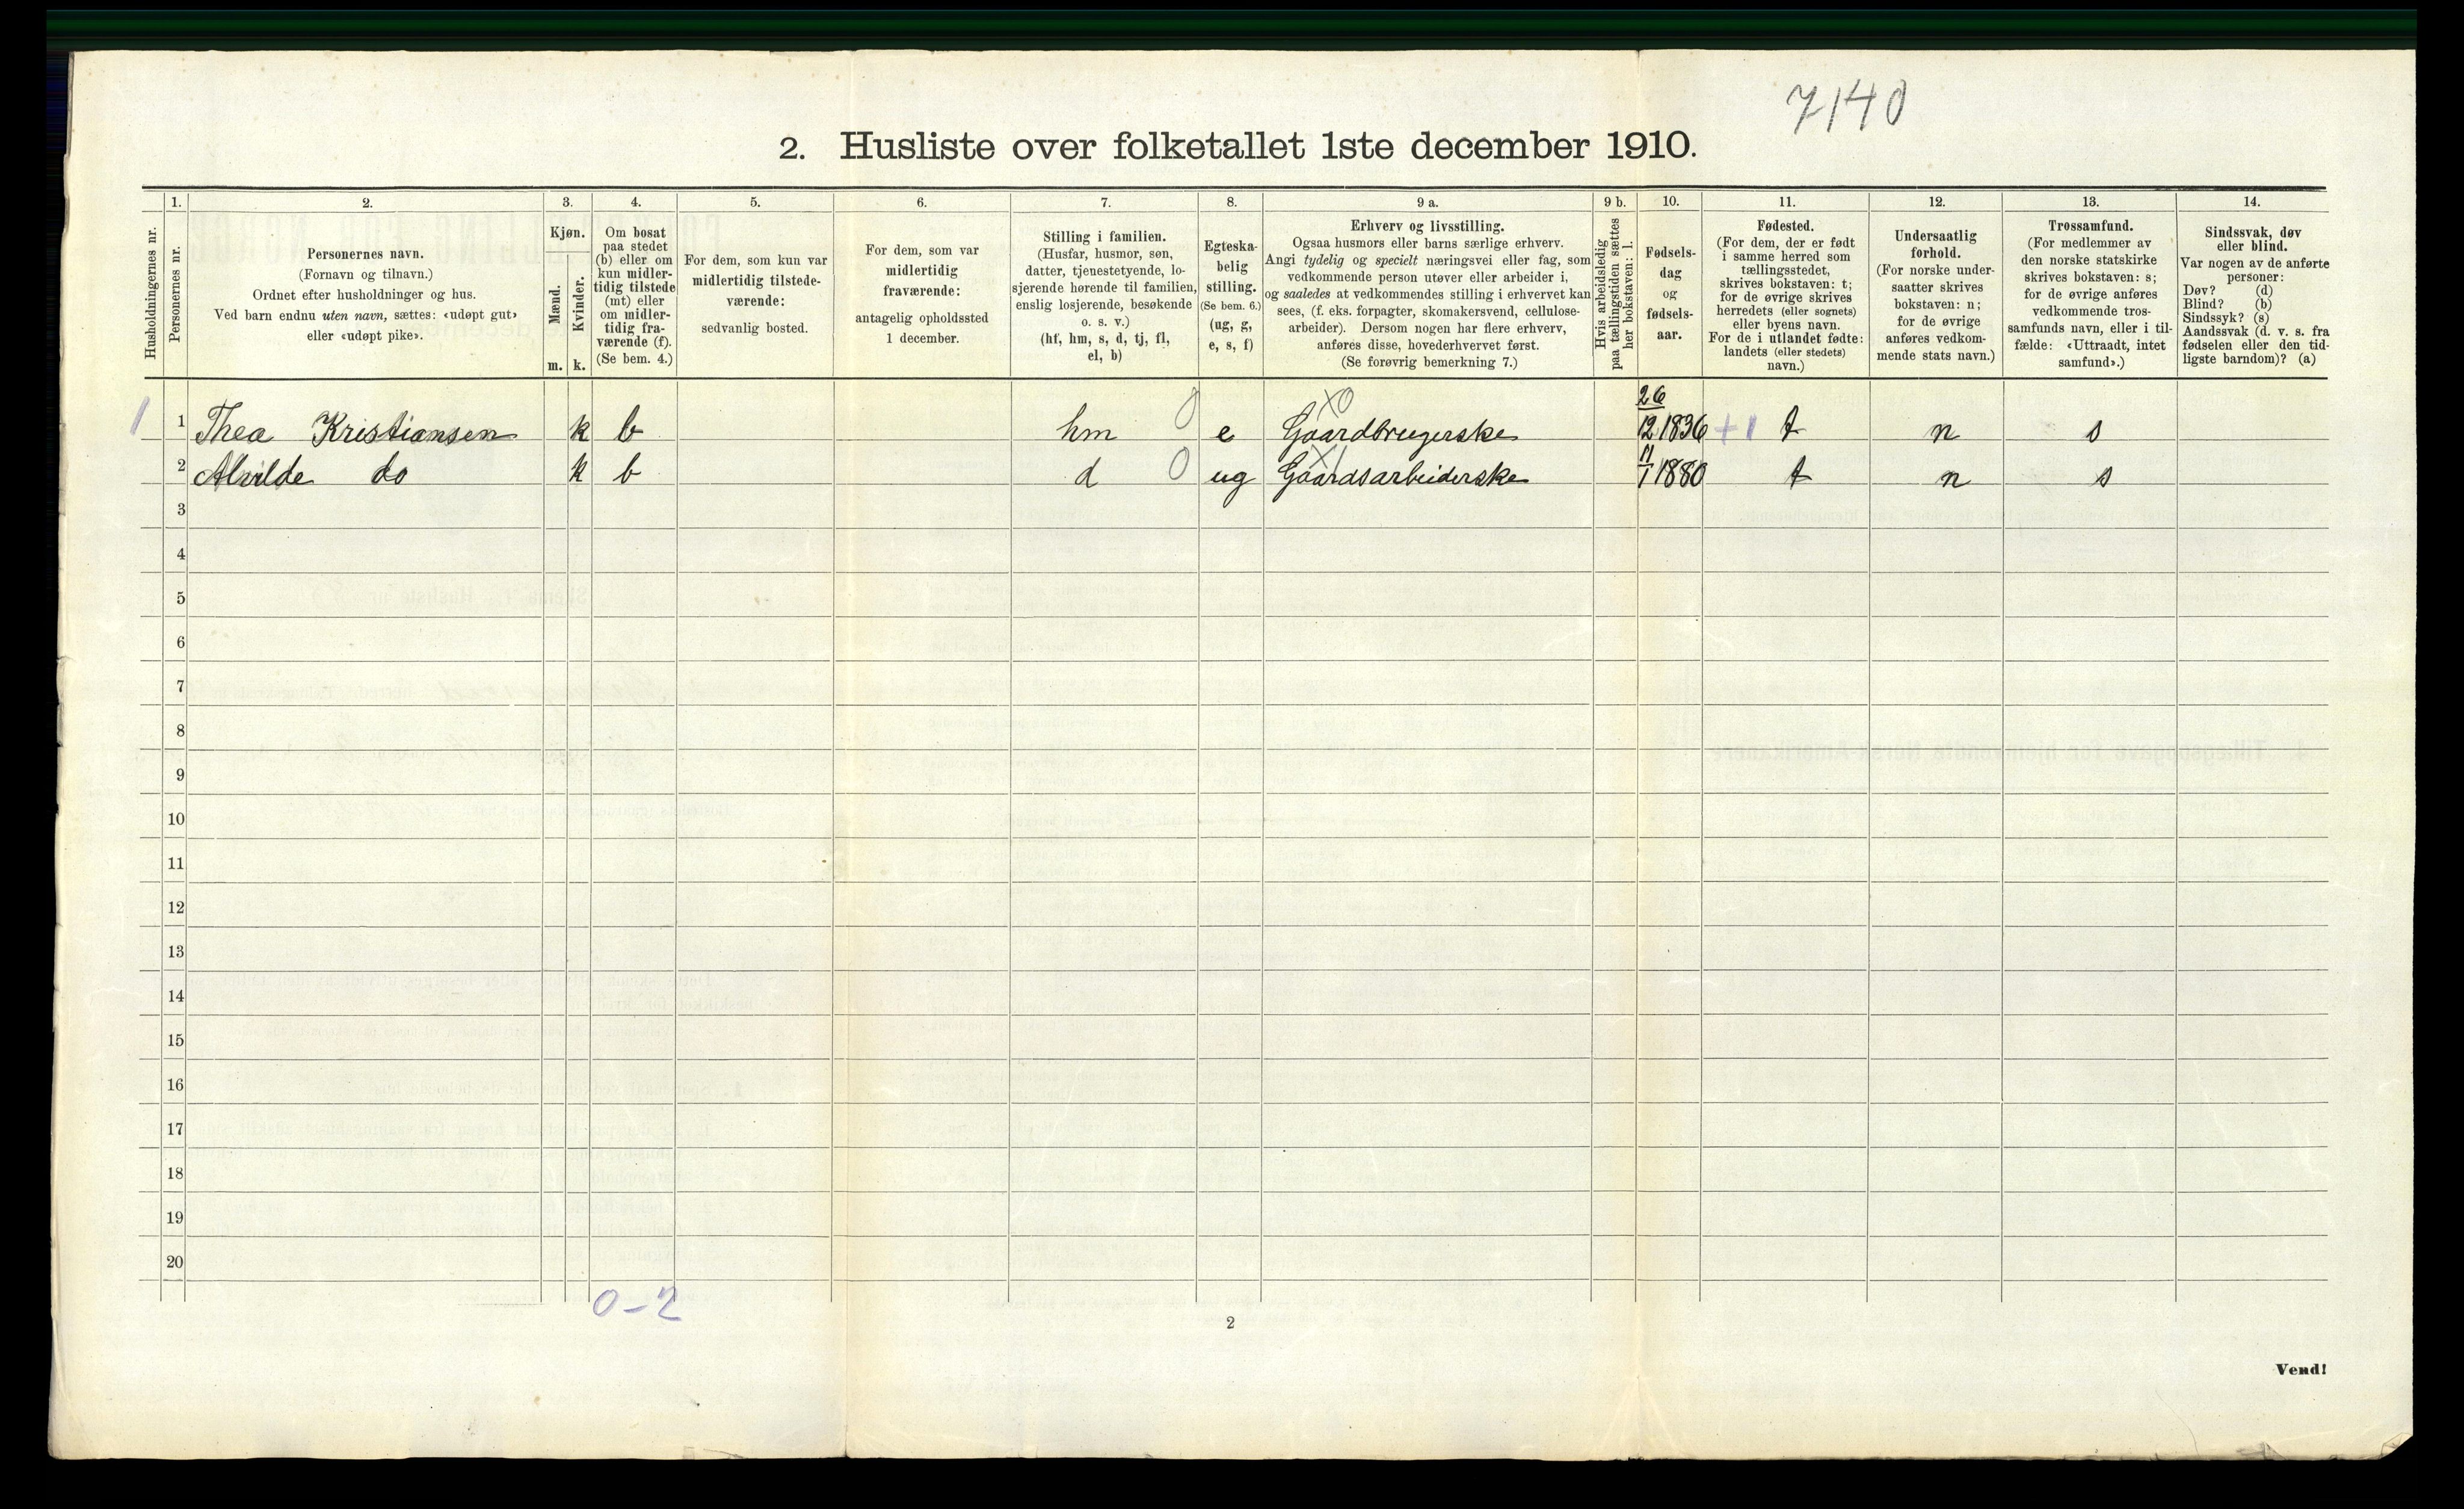 7140
2. Husliste over folketallet 1ste december 1910.
Husholdningernes nr.
1.
Personernes nr.
2.
Personernes navn.
(Fornavn og tilnavn.)
Ordnet efter husholdninger og hus.
Ved barn endnu uten navn, sættes: «udøpt gut»
eller «udøpt pike».
3.
Kjøn.
Mænd.
Kvinder.
m. k.
4.
Om bosat
paa stedet
(b) eller om
kun midler-
tidig tilstede
(mt) eller
om midler-
tidig fra-
værende (f).
(Se bem. 4.)
5.
For dem, som kun var
midlertidig tilstede-
værende:
sedvanlig bosted.
6.
For dem, som var
midlertidig
fraværende:
antagelig opholdssted
1 december.
7.
Stilling i familien.
(Husfar, husmor, søn,
datter, tjenestetyende, lo-
sjerende hørende til familien,
enslig losjerende, besøkende
o. s. v.)
(hf, hm, s, d, tj, fl,
el, b)
8.
Egteska-
belig
stilling.
(Se bem. 6.)
(ug, g,
e, s, f)
9 a.
Erhverv og livsstilling.
Ogsaa husmors eller barns særlige erhverv.
Angi tydelig og specielt næringsvei eller fag, som
vedkommende person utøver eller arbeider i,
og saaledes at vedkommendes stilling i erhvervet kan
sees, (f. eks. forpagter, skomakersvend, cellulose-
arbeider). Dersom nogen har flere erhverv,
anføres disse, hovederhvervet først.
(Se forøvrig bemerkning 7.)
9 b.
Hvis arbeidsledig
paa tællingstiden sættes
her bokstaven: l.
10.
Fødsels-
dag
og
fødsels-
aar.
11.
Fødested.
(For dem, der er født
i samme herred som
tællingsstedet,
skrives bokstaven: t;
for de øvrige skrives
herredets (eller sognets)
eller byens navn.
For de i utlandet fødte:
landets (eller stedets)
navn.)
12.
Undersaatlig
forhold.
(For norske under-
saatter skrives
bokstaven: n;
for de øvrige
anføres vedkom-
mende stats navn.)
13.
Trossamfund.
(For medlemmer av
den norske statskirke
skrives bokstaven: s;
for de øvrige anføres
vedkommende tros-
samfunds navn, eller i til-
fælde: «Uttraadt, intet
samfund».)
14.
Sindssvak, døv
eller blind.
Var nogen av de anførte
personer:
Døv? (d)
Blind? (b)
Sindssyk? (s)
Aandssvak (d. v. s. fra
fødselen eller den tid-
ligste barndom)? (a)
1 1 Thea Kristiansen k b hm 0 e X0 Gaardbrugerske 26/12 1836 +1 t n s
2 Alvilde do k b d 0 ug X1 Gaardsarbeiderske 11/1 1880 t n s
3
4
5
6
7
8
9
10
11
12
13
14
15
16
17
18
19
20
0-2
2
Vend!